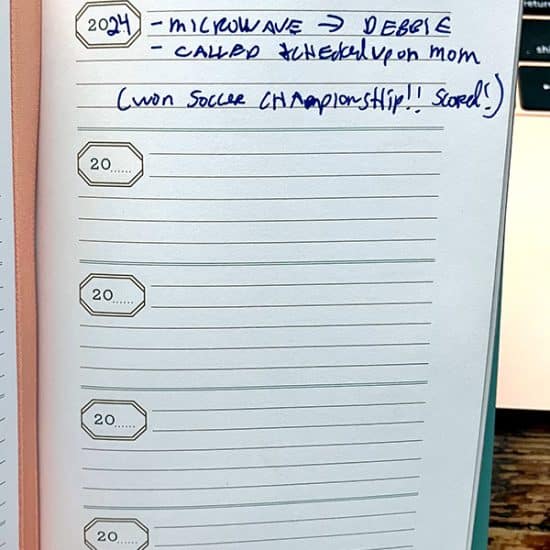 2024 - MICROWAVE → DEBBIE
- CALLED + CHECKed up on mom
(won Soccer CHAmpionsHip!! Scored!)
20......
20......
20......
20......
return
shi